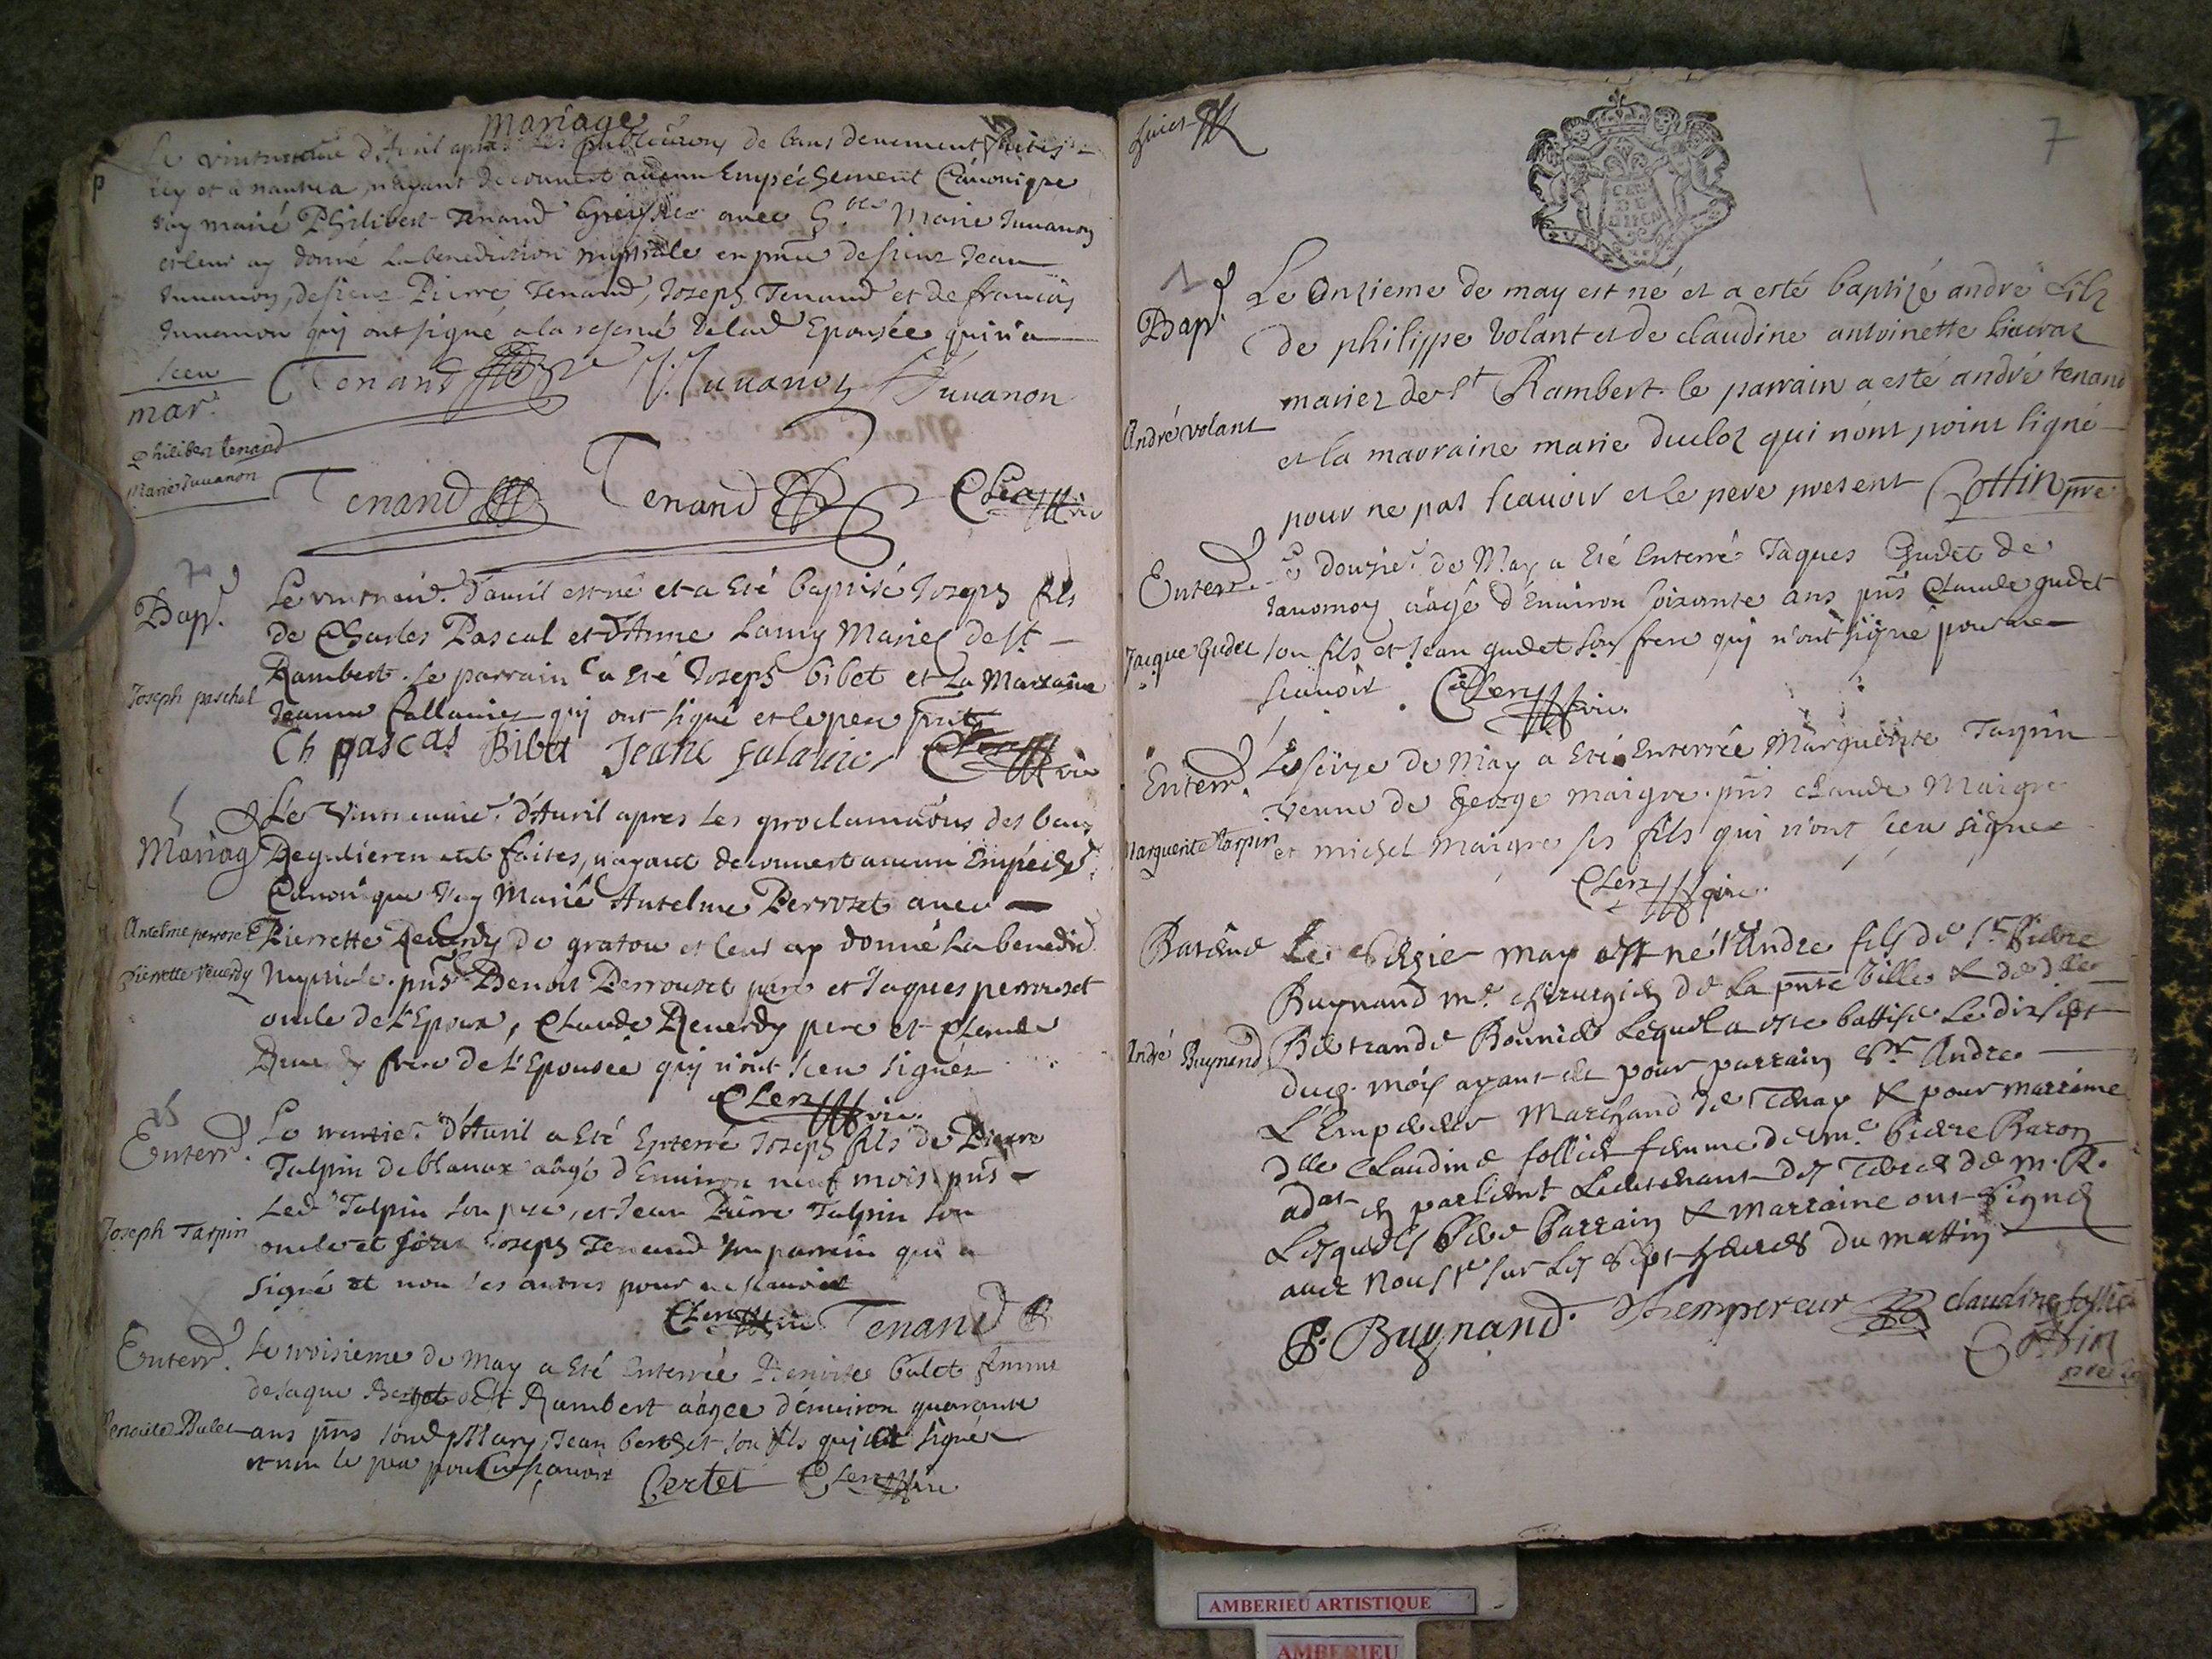 Mariage
Le d'Avril apres les publications de bans deuement faites
icy et a nantua nayant decouvert aucun Empéchement Canonique
iay marié Philibert Tenand Greffier avec Marie Juuanon
et leur ay donné la benediction nuptiale en pñce de sieur Jean
Juuanon, de sieur Pierre Tenand, Joseph Tenand et de francois
Juuanon qui ont signé a la reserve de lad Epousée qui n'a
sceu
Tenand Juuanon Juuanon
mar.
Philibert tenand
Marie Juuanon
Tenand Tenand Clerc vic
Bap.
Le d'auril est né et a Eté baptisé Joseph fils
de Charles Pascal et d'Anne Lamy Mariés de St
Rambert. Le parrain a été Joseph bibet et La Marraine
Joseph paschal
Jeanne fallavier qui ont signé et le pere pñt
Ch pascal Bibet Jeane falavier Clerc vic
Le d'Auril apres Les proclamaons des bans
Mariag
Regulierement faites, n'ayant decouvert aucun Empéch
Canonique J'ay Marié Antelme Perrozet avec
Antelme perroset
Pierrette Reverdy de gratou et leur ay donné la benedic
Pierrette reverdy
Nuptiale. pñs Benoit Perrouset pere et Jaques perrouset
oncle de l'Epoux, Claude Reverdy pere et Claude
Reverdy frere de L'Epousée qui n'ont sceu signer
Clerc vic.
Enterr.
Le trentie. d'Auril a Eté Enterré Joseph fils de Pierre
Talpin de blanaz aagé d'Environ neuf mois pñs
Led Talpin son pere, et Jean Pierre Talpin son
Joseph Tarpin
oncle et sieur Joseph Tenand son parrain qui a
signé et non les autres pour ne scauoir
Clerc vic Tenand
Enterr.
Le troisieme de May a Eté Enterrée Benoite bulet femme
de Jaque Bertet de St Rambert aagée d'enuiron quarante
Benoite Bulet
ans pñs sond Mary, Jean berthet son fils qui a signé
et non le pere pour ne scauoir Bertet Clerc vic
7
GEN
DE
DIION
Bap.
Le Onzieme de may est né et a esté baptizé andré filz
de philippe Volant et de claudine antoinette
mariez de St Rambert. le parrain a esté andré tenand
André volant
et la marraine marie ducloz qui n'ont point signé
pour ne pas scauoir et le pere present Cottin pre
Enterr.
Le douzie. de May a Eté Enterré Jaques Gudet de
Jauornoz aagé d'Enuiron soixante ans pñs Claude gudet
Jacque Gudet
son fils et Jean gudet son frere qui n'ont signé pour ne
scauoir. Clerc vic.
Enterr.
Le seize de May a Eté Enterrée Marguerite Tarpin
veuve de George maigre. pñs claude Maigre
Marguerite Tarpin
et michel Maigre ses fils qui n'ont sceu signer
Clerc vic.
Bateme
Le sezie may est né André fils de Sr Pierre
Buynand me chirurgien de La pñte Ville & de dlle
André Buynand
Bertrande Bonnier Lequel a este battisé Le dixsept
dud. mois ayant eu pour parrain Sr Andre
L'Empereur Marchand de Tenay & pour marraine
dlle Claudine follier femme de me Pierre Baron
adat en parlement Lieutenant des Terres de m. R.
Lesquels Pere Parrain & marraine ont signé
avec Nous sur Les Sept heures du mattin
P. Buynand. Lhempereur claudine follie
Cottin
pre
AMBERIEU ARTISTIQUE
AMBERIEU